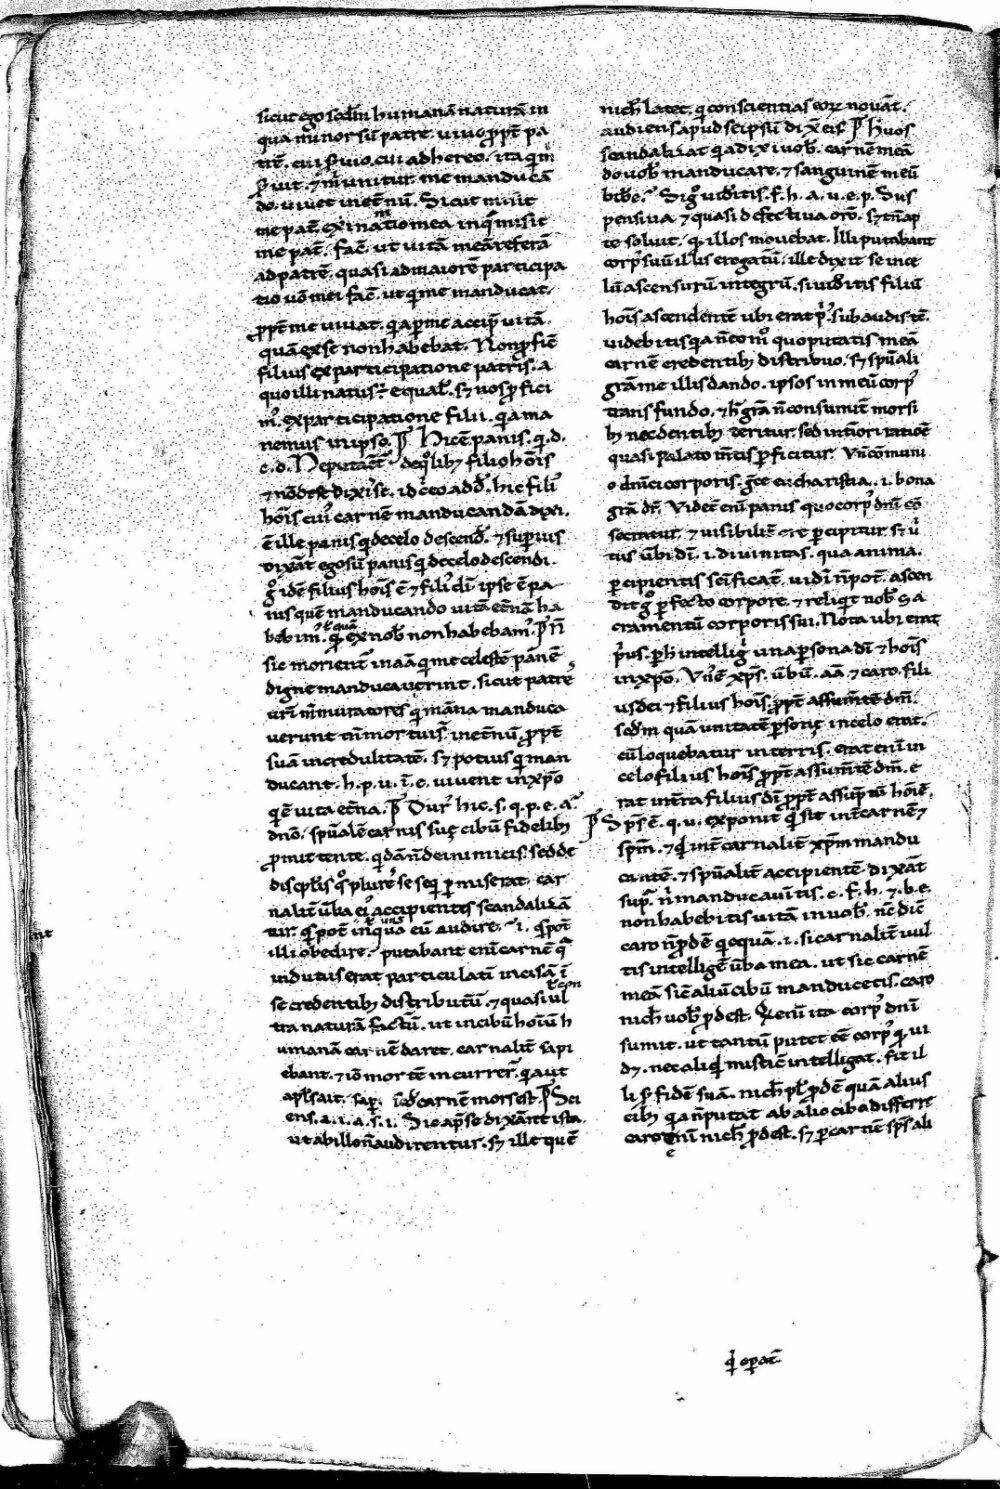 sicut ego scd̄m humanā naturā in
qua minor sū patre. uiuo ꝓpt̄ pa
trē. cui ẜuio. cui adhereo. ita qi m̄
ẜuit. ⁊ m̄ unitur me manducā
do. uiuet inet̄nū. Sicut misit
me pat̄. exinanitio mea inq̄ misit
me pat̄. fac̄ ut uitā meā referā
ad patrē. quasi ad maiorē participa
tio uō mei fac̄. ut qi me manducat.
ꝓpt̄ me uiuat. qa ꝑ me accip̄ uitā.
quā ex se non habebat. Non ꝓficit
filius ex participatione patris. a
quo illi natus ē equal̄. sꝫ nos ꝓfici
mꝰ. ex participatione filii. qa ma
nemus in ipso. ¶ Hic ē panis. q. d.
c. d. Ne putaēt deqͦlibꝫ filio hōis
⁊ nō de se dixisse. idc̄co add̄. hic filiꝰ
hōis cuiꝰ carnem manducandā dixi.
ē ille panis qi de celo descend̄. ⁊ supius
dixāt ego sū panis qi de celo descendi.
gͦ idē filius hōis ē ⁊ filiꝰ di. ipse ē pa
nis quē manducando uitā et̄nā ha
bebimꝰ. q̄ ex nob̄ non habebamꝰ. ¶ N̄
sic morient̄ in aīa qi me celestē panē
digne manducauerint. sicut patres
ur̄i m̄muratores qi māna manduca
uerunt ⁊ mortui s̄. inet̄nū. ꝓpt̄
suā incredulitatē. sꝫ potius qi man
ducant. h. p. u. i. e. uiuent in xp̄o
qi ē uita et̄na. ¶ Durꝰ hic. s. q. p. e. a.
dn̄o. spūalē carnis suę cibū fidelibꝫ
ꝓmittente. qidā n̄ de inimicis. sed de
discipl̄is qͦs plures se seq ꝑmiserat. car
nalit̄ ūba eiꝰ accipientes scandalizā
tur. qis pot̄ inquā eū audire. i. qis pot̄
illi obedire. putabant eni carnē qa
indutus erat particulati incisā i
se credentibꝫ distributū. ⁊ quasi ul
tra naturā factū. ut in cibū hoiū h
umanā carnē daret. carnalit̄ sapi
ebant. ⁊ iō mortē incurrer̄. qa ut
apl̄s ait. sap̄. scd̄m carnē mors est. ¶ Sci
ens. a. i. a. s. i. Sic ap̄ se dixānt ista.
ut ab illo n̄ audirentur. sꝫ ille quē
nich̄ latet. qi conscientias eoꝝ nouāt.
audiens apud seipsū dix̄ eis. ¶ H̄ uos
scandalizat qa dixi uob̄. carnē meā
do uob̄ manducare. ⁊ sanguinē meū
bibe. Si gͦ uiditis. f. h. a. u. e. p. Sus
pensiua ⁊ quasi defectiua orō. sꝫ tn̄ ap
te soluit. qͦ illos mouebat. Illi putabant
corpꝰ suū illis erogatū. ille dixit se in ce
lū ascensurū integrū. si uiditis filiū
hōis ascendentē ubi erat pͥꝰ. subaudis tē.
uidebitis qa n̄ eo mͦ quo putatis meā
carnē credentibꝫ distribuo. sꝫ spūali
grā me illis dando. ipsos in meū corpꝰ
transfundo. ⁊ h̄ grā n̄ consumit̄ morsi
bꝫ nec dentibꝫ teritur. sed int̄iori ratiōe
quasi palato m̄tis ꝑficitur. Vn̄ cōmuni
o dn̄ici corporis. grece eucharistia. i. bona
grā dr̄. Videt̄ eni panis quo corpꝰ dn̄i cō
secratur. ⁊ uisibilit̄ ore ꝑcipitur. sꝫ uͥ
tus ūbi di. i. diuinitas. qua anima.
ꝑcipientis sc̄ificat̄. uidi n̄ pot̄. ascen
dit gͦ ꝑfecto corpore. ⁊ reliqit nob̄ sa
cramentū corporis sui. Nota ubi erat
pͥus. ꝑ h̄ intelligͥ una ꝑsona di ⁊ hōis
in xp̄o. Vn̄ ē xp̄s. ūbū. aīa. ⁊ caro. fili
us dei ⁊ filius hōis. ꝓpt̄ assumtē dm̄.
scd̄m quā unitatē ꝑsonę in celo erat.
cū loquebatur in terris. erat eni in
celo filius hōis ꝓpt̄ assumtē dm̄. e
rat in t̄ra filius di ꝓpt̄ assūptū hōiē.
¶ Spc̄ ē. q. u. exponit qͥ sit int̄ carnē ⁊
spm̄. ⁊ qͥ int̄ carnalit̄ xpm̄ mandu
cantē. ⁊ spūalit̄ accipientē dixāt
supͣ. nͥ manducauitis. c. f. h. ⁊. b. e.
non habebitis uitā in uob̄. nē dic̄
caro n̄ ꝓdē qicquā. i. si carnalit̄ uul
tis intelligē ūba mea. ut sic carnē
meā sic̄ aliū cibū manducetis. caro
nich̄ uob̄ ꝓdest. Qi eni ita corpꝰ dn̄i
sumit. ut tantū putet eē corpꝰ qͥ ui
dꝫ. nec aliqͥ mistic̄ intelligat. fit il
li ẜ fidē suā. nich̄ pl̄ꝰ ꝓdē quā alius
cibꝫ qa n̄ putat ab alio cibo differre
caro eni nich̄ ꝓdest. sꝫ ꝑ carnē sp̄s ali
qͥ oꝑat̄.